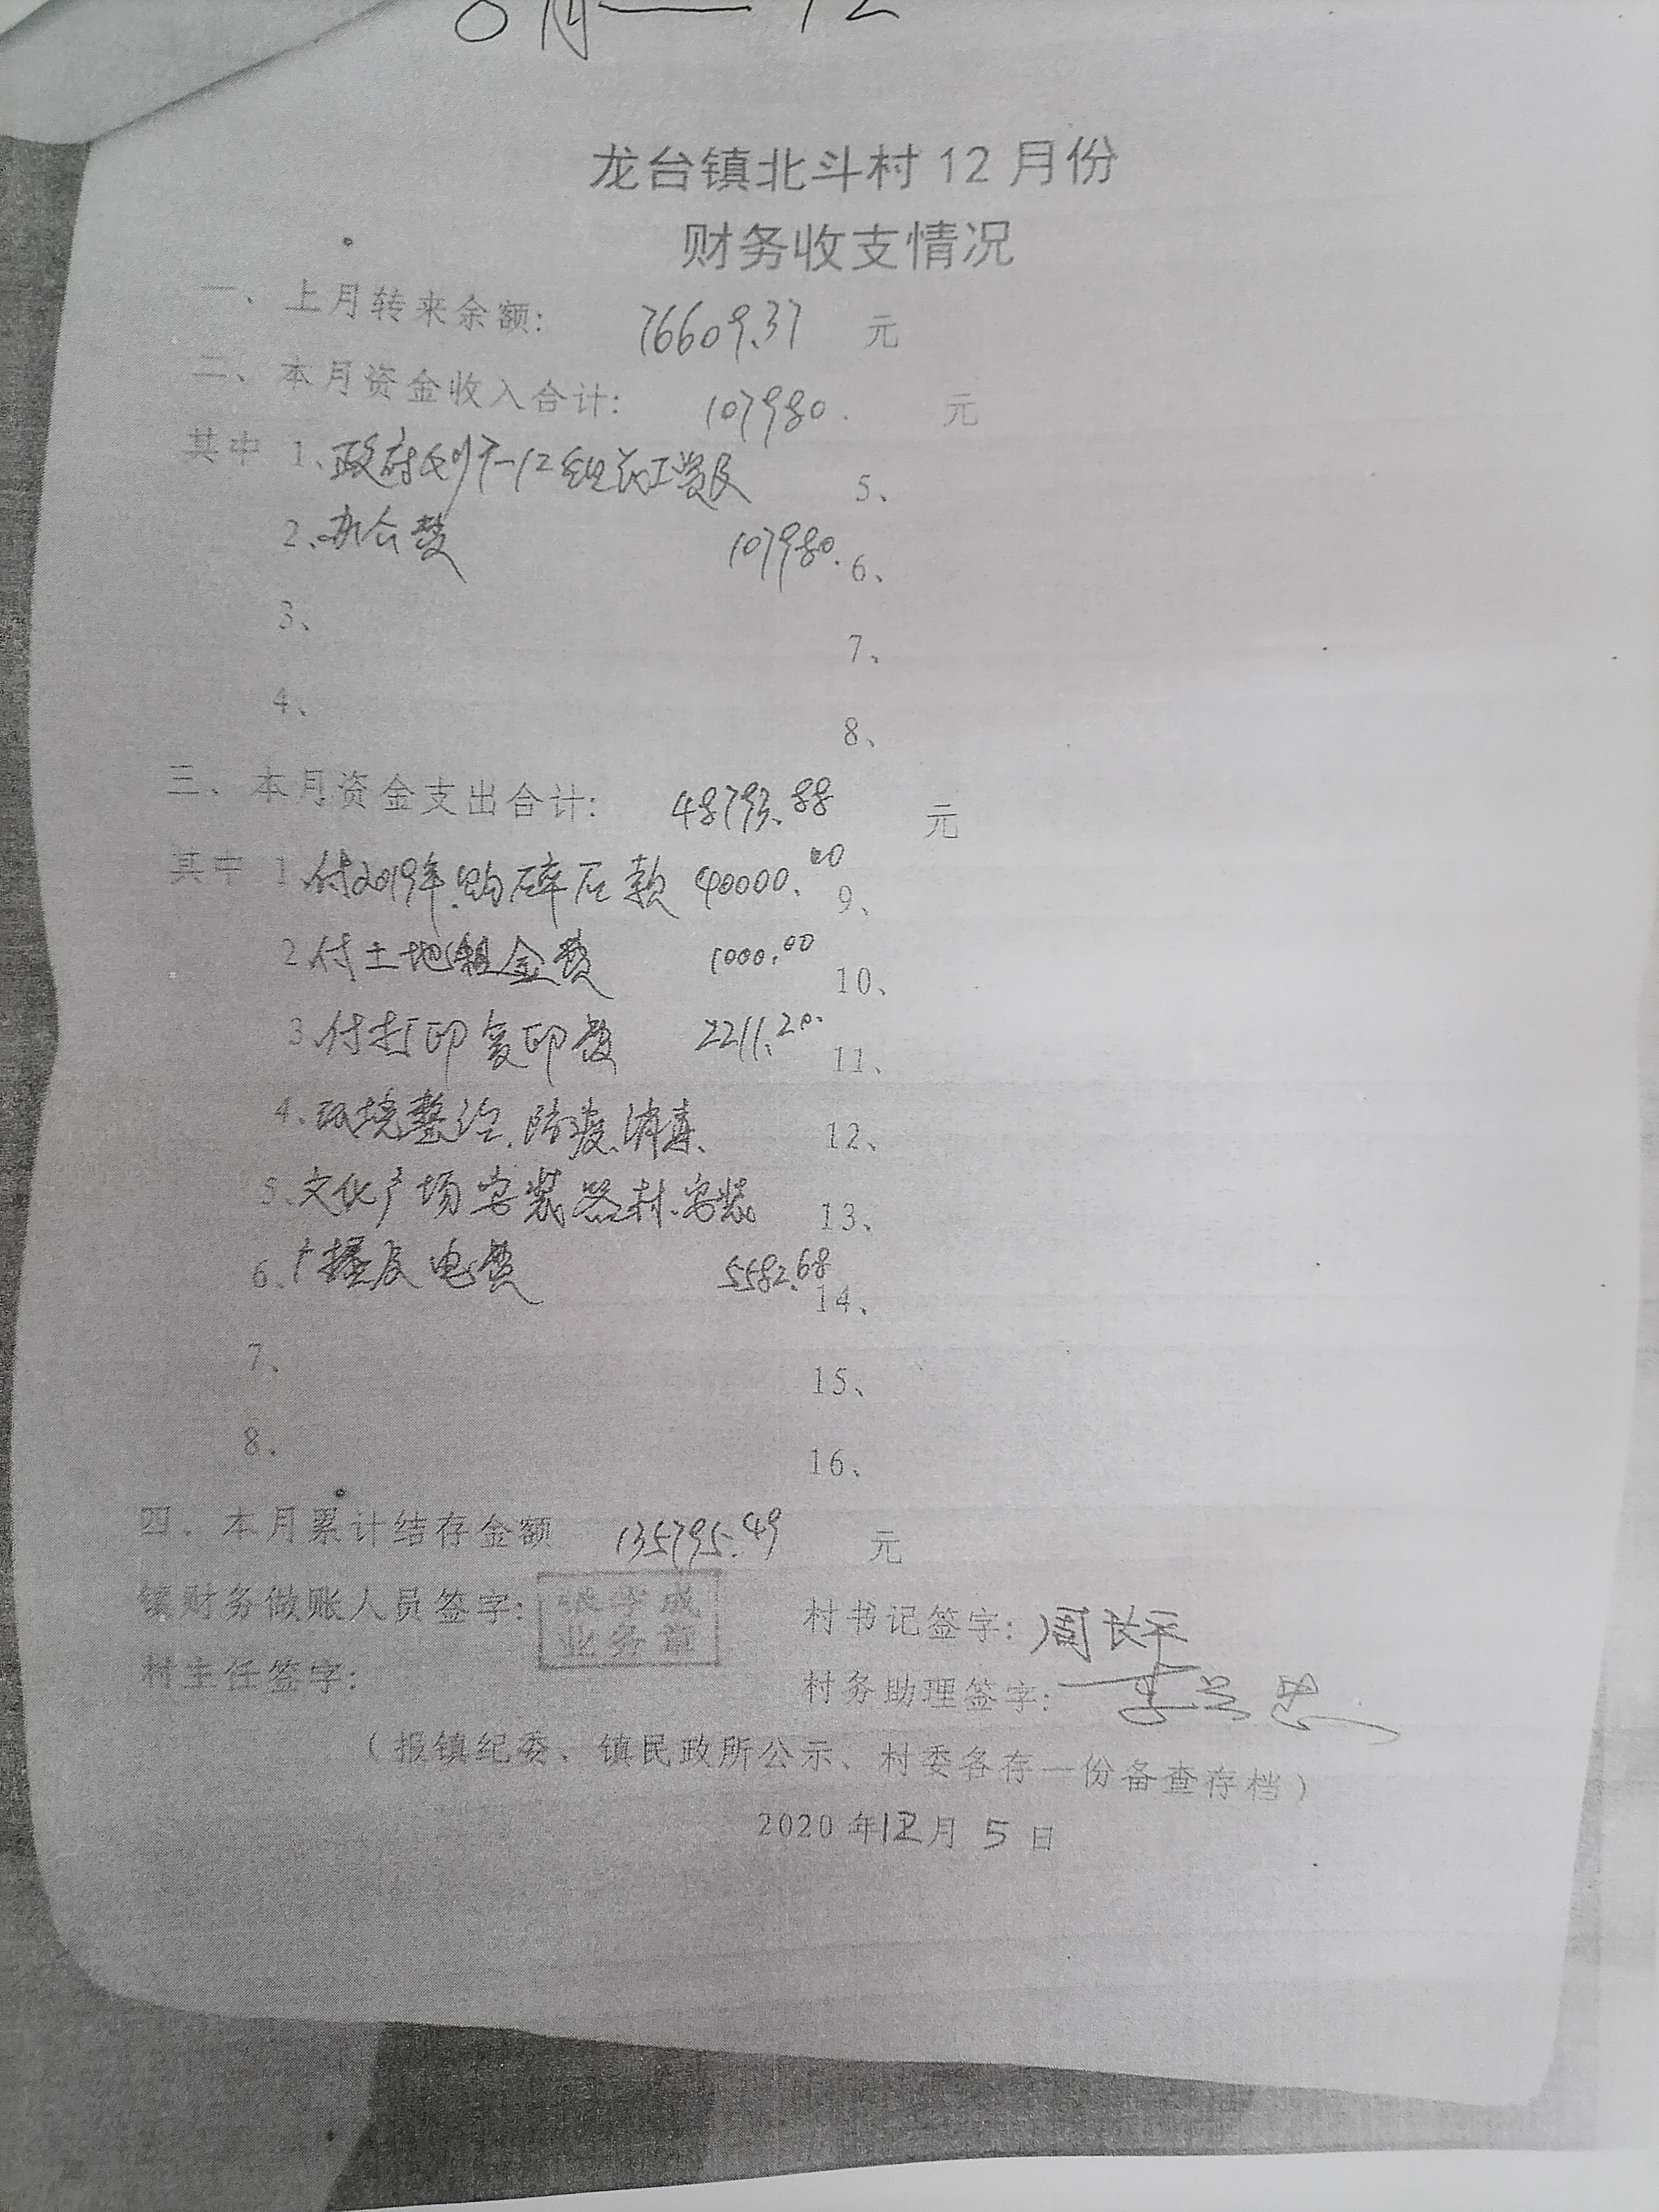 月——12
龙台镇北斗村12月份
财务收支情况
一、上月转来余额: 76609.37 元
二、本月资金收入合计: 107980. 元
其中 1、政府划7-12组误工费及 5、
2、办公费 107980. 6、
3、 7、
4、 8、
三、本月资金支出合计: 48793.88 元
其中 1、付2019年购碎石款 40000.00 9、
2、付土地租金费 1000.00 10、
3、付打印复印费 2211.20. 11、
4、环境整治、防疫、消毒、 12、
5、文化广场安装器材、安装 13、
6、广播及电费 5582.68 14、
7、 15、
8、 16、
四、本月累计结存金额 135795.49 元
镇财务做账人员签字: 张学成 业务章 村书记签字: 周长平
村主任签字: 村务助理签字: 李
(报镇纪委、镇民政所公示、村委各存一份备查存档)
2020年12月5日